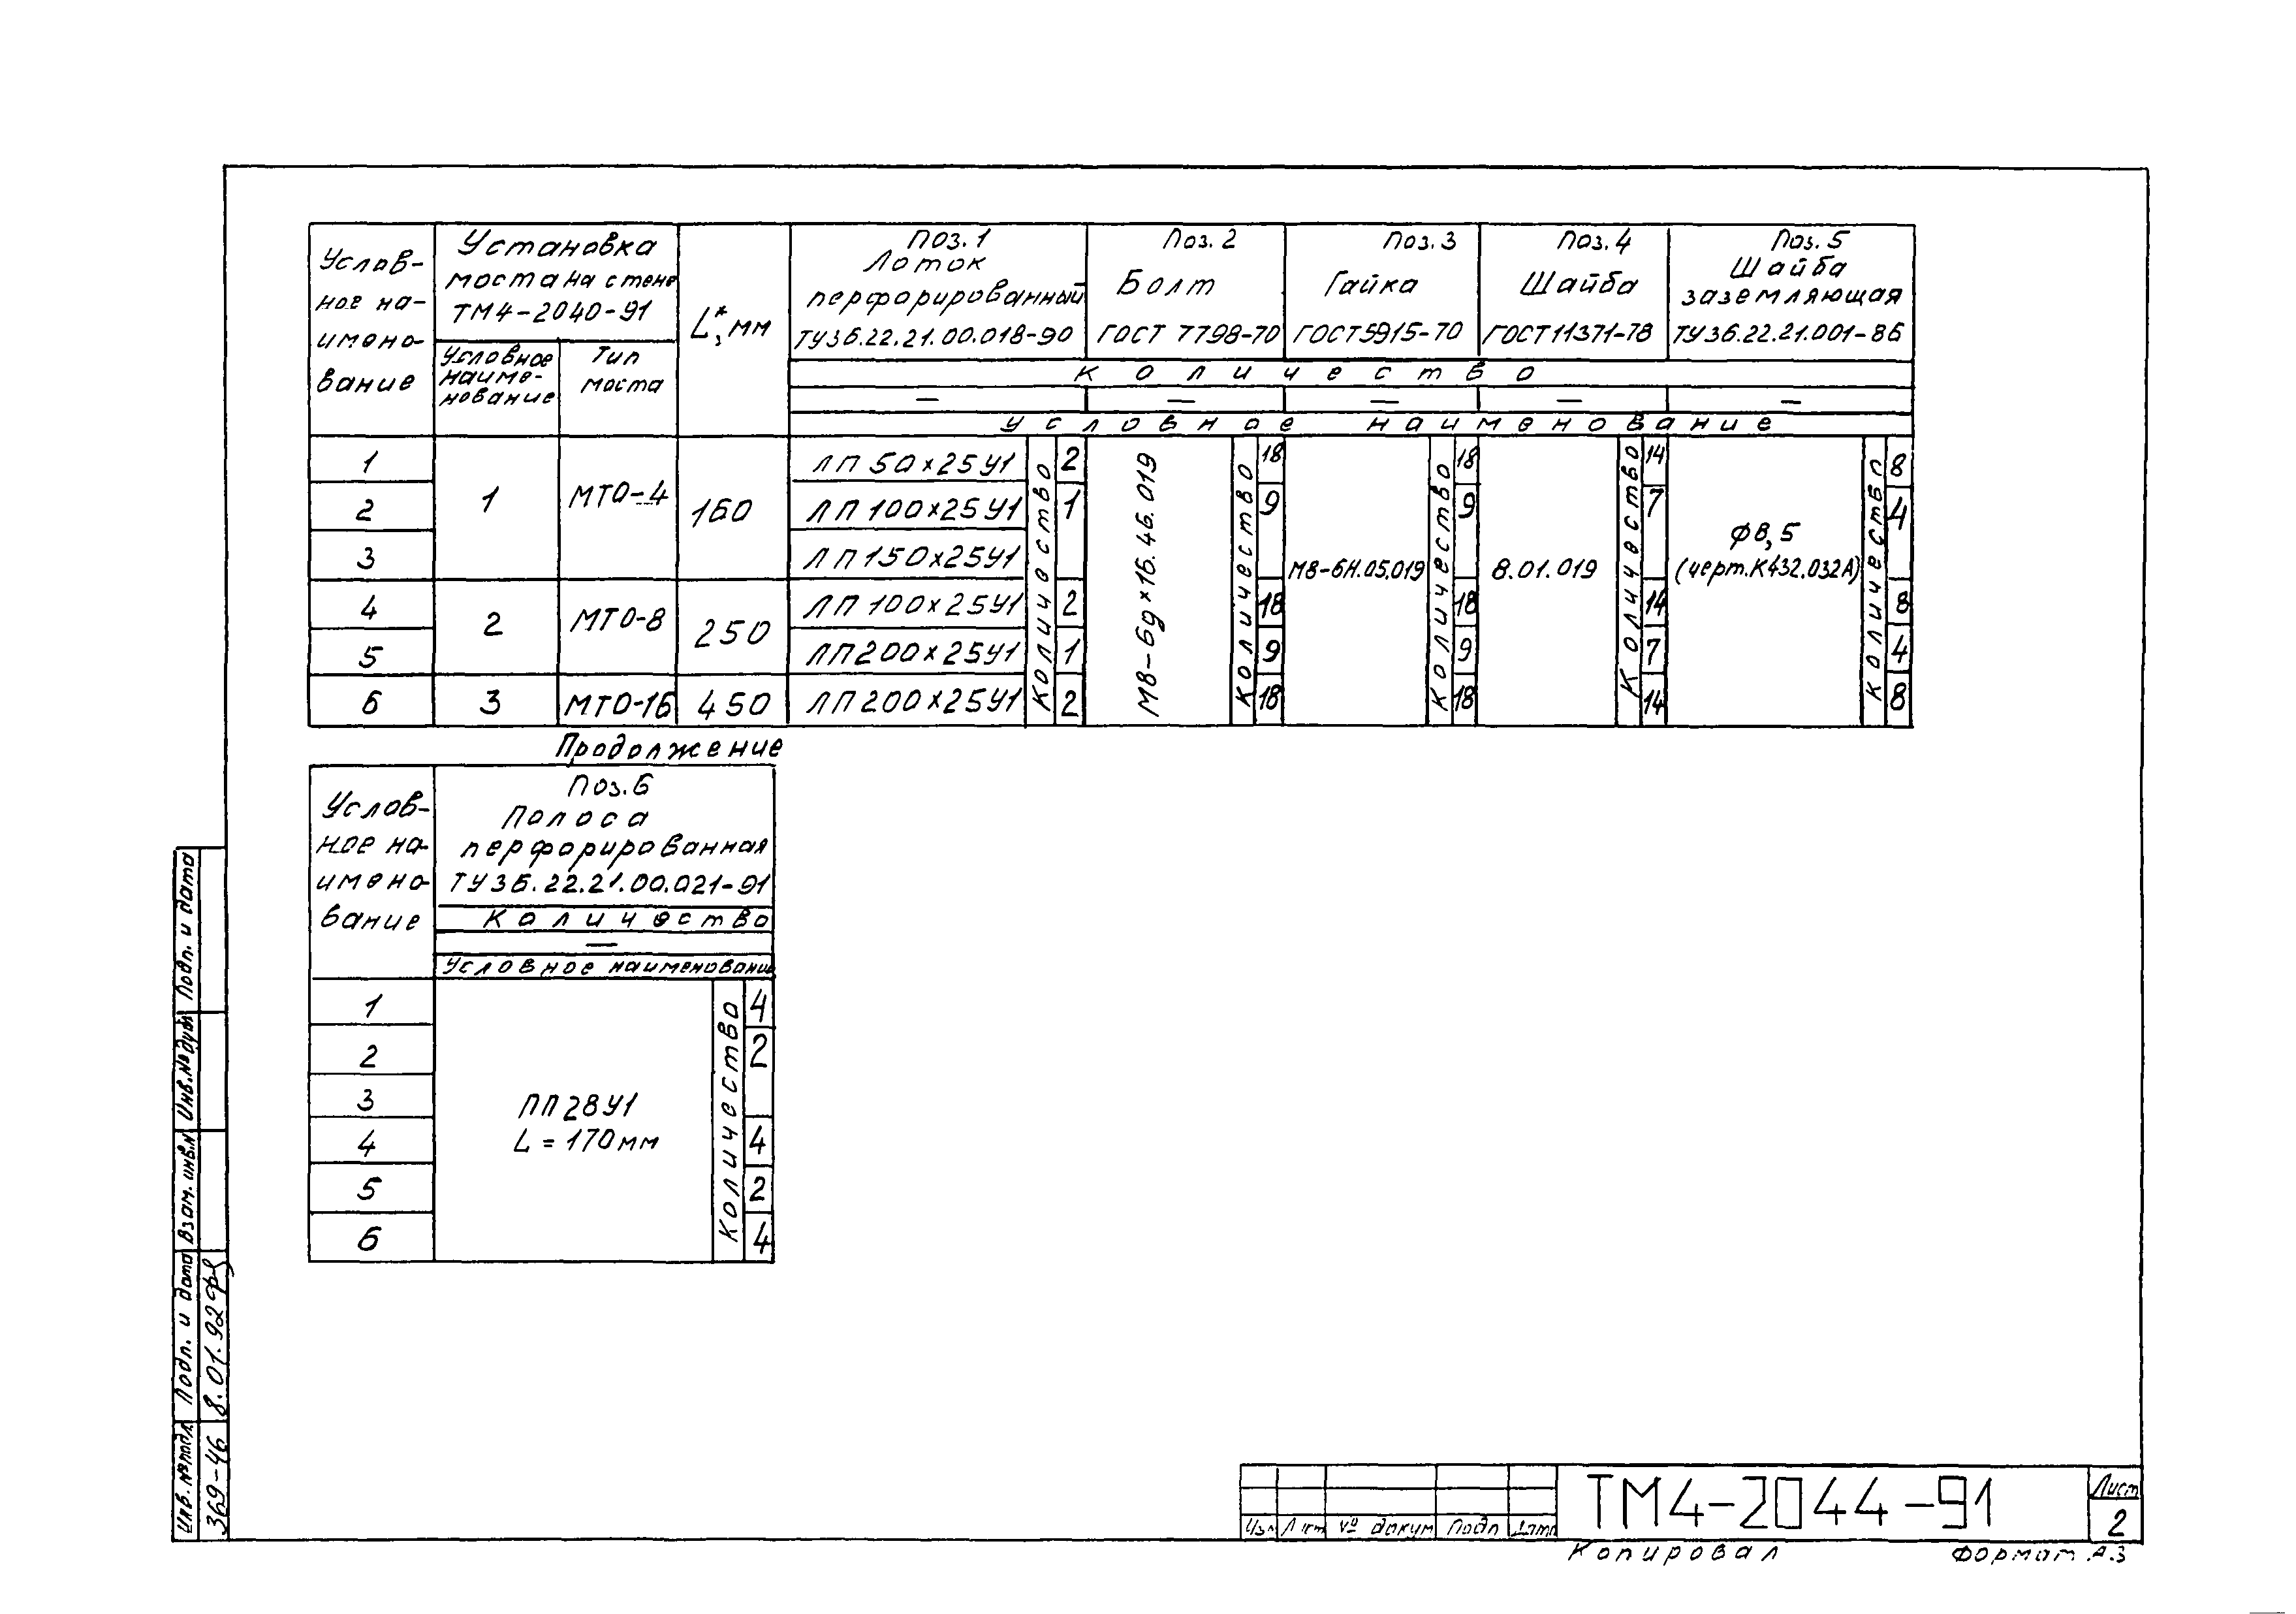 Услов-
ное на-
имено-
вание
Установка
моста на стене
ТМ4-2040-91
Условное
наиме-
нование
Тип
моста
L*, мм
Поз. 1
Лоток
перфорированный
ТУ36.22.21.00.018-90
Поз. 2
Болт
ГОСТ 7798-70
Поз. 3
Гайка
ГОСТ5915-70
Поз. 4
Шайба
ГОСТ11371-78
Поз. 5
Шайба
заземляющая
ТУ36.22.21.001-86
Количество
— — — — —
Условное наименование
1 1 МТО-4 160 ЛП 50×25У1 Количество 2 М8-6g×16.46.019 Количество 18 М8-6Н.05.019 Количество 18 8.01.019 Количество 14 Ф8,5 (черт.К432.032А) Количество 8
2 ЛП 100×25У1 1 9 9 7 4
3 ЛП150×25У1
4 2 МТО-8 250 ЛП 100×25У1 2 18 18 14 8
5 ЛП200×25У1 1 9 9 7 4
6 3 МТО-16 450 ЛП200×25У1 2 18 18 14 8
Продолжение
Услов-
ное на-
имено-
вание
Поз.6
Полоса
перфорированная
ТУ36.22.21.00.021-91
Количество
—
Условное наименование
1 ПП28У1 Количество 4
2 L=170мм 2
3
4 4
5 2
6 4
Подп. и дата
Инв.№дубл
Взам. инв.№
Подп. и дата
8.01.92
Инв.№подл
369-46
Изм Лист № докум Подп Дата
ТМ4-2044-91
Лист
2
Копировал Формат А3